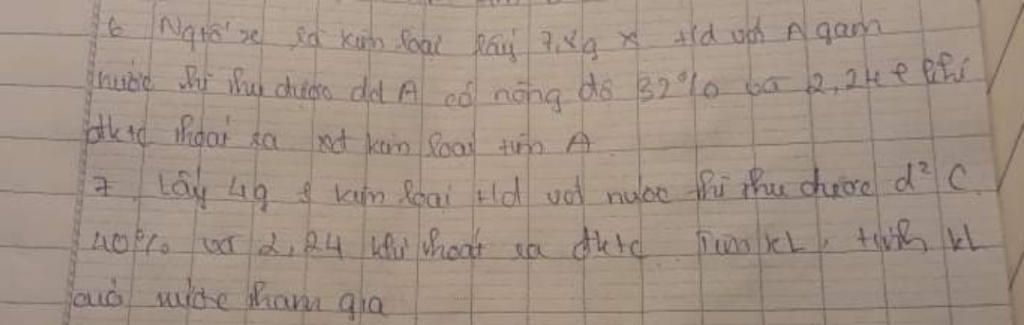 6 Ngtố x là kim loại lấy 7,8g x t/d với A gam
nước thì thu được dd A có nồng độ 32% và 2,24 l khí
đktc thoát ra xđ kim loại tìm A
7 Lấy 4g 1 kim loại t/d với nước thì thu được d² C
40% và 2,24 khí thoát ra đktc Tìm KL, tính kl
của nước tham gia